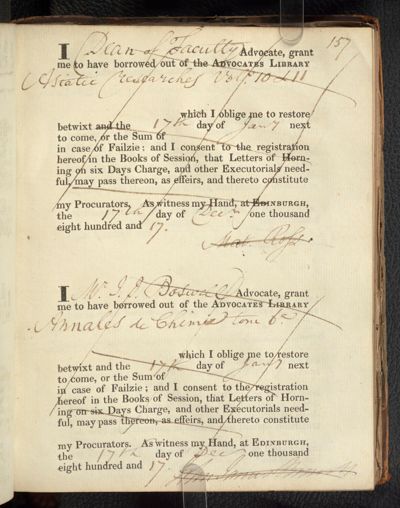 157
I Dean of Faculty Advocate, grant
me to have borrowed out of the ADVOCATES LIBRARY
Asiatic Researches Vols 10 & 11
which I oblige me to restore
betwixt and the 17th day of Jany next
to come, or the Sum of
in case of Failzie: and I consent to the registration
hereof in the Books of Session, that Letters of Horn-
ing on six Days Charge, and other Executorials need-
ful, may pass thereon, as effeirs, and thereto constitute
my Procurators. As witness my Hand, at EDINBURGH,
the 17th day of Decr one thousand
eight hundred and 17.
Mat. Ross
I Mr. J. J. Boswell Advocate, grant
me to have borrowed out of the ADVOCATES LIBRARY
Annales de Chimie tome 6e
which I oblige me to restore
betwixt and the 17th day of Jany next
to come, or the Sum of
in case of Failzie; and I consent to the registration
hereof in the Books of Session, that Letters of Horn-
ing on six Days Charge, and other Executorials need-
ful, may pass thereon, as effeirs, and thereto constitute
my Procurators. As witness my Hand, at EDINBURGH,
the 17th day of Decr one thousand
eight hundred and 17.